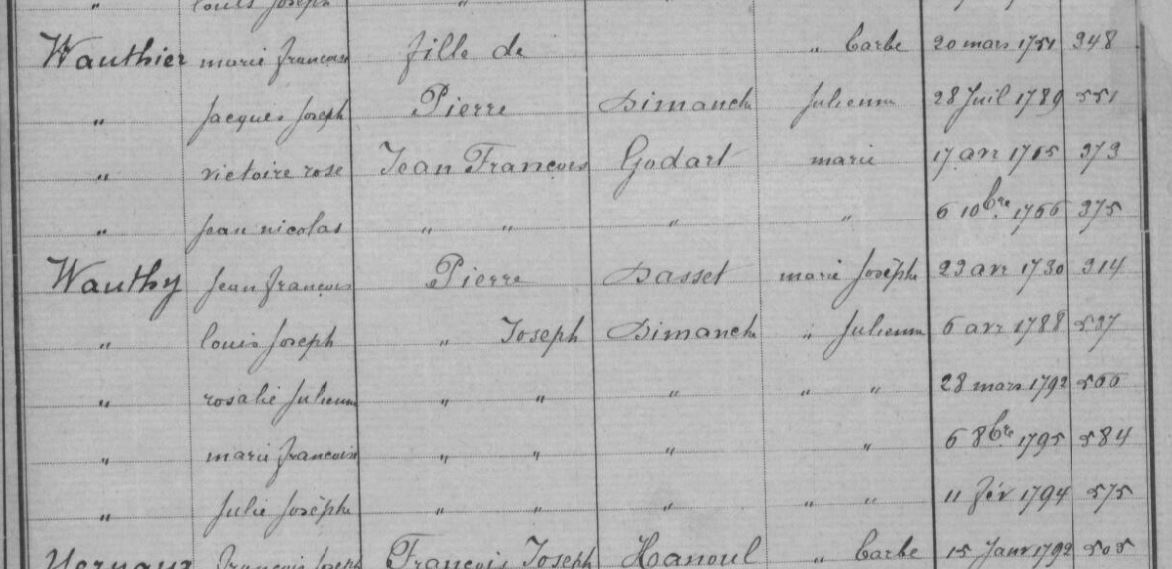 " louis Joseph "
Wauthier marie francoise fille de " barbe 20 mars 1751 348
" Jacques Joseph Pierre Dimanche Julienne 28 Juil 1789 551
" victoire rose Jean François Godart marie 17 avr 1765 373
" Jean nicolas " " " " 6 10bre 1766 375
Wauthy Jean françois Pierre Dasset marie Josèphe 23 avr 1730 314
" louis Joseph " Joseph Dimanche " Julienne 6 avr 1788 537
" rosalie Julienne " " " " " 28 mars 1792 566
" marie francoise " " " " 6 8bre 1795 584
" Julie Josèphe " " " " " 11 fév 1794 575
François Joseph François Joseph Hanoul " barbe 15 Janv 1792 505